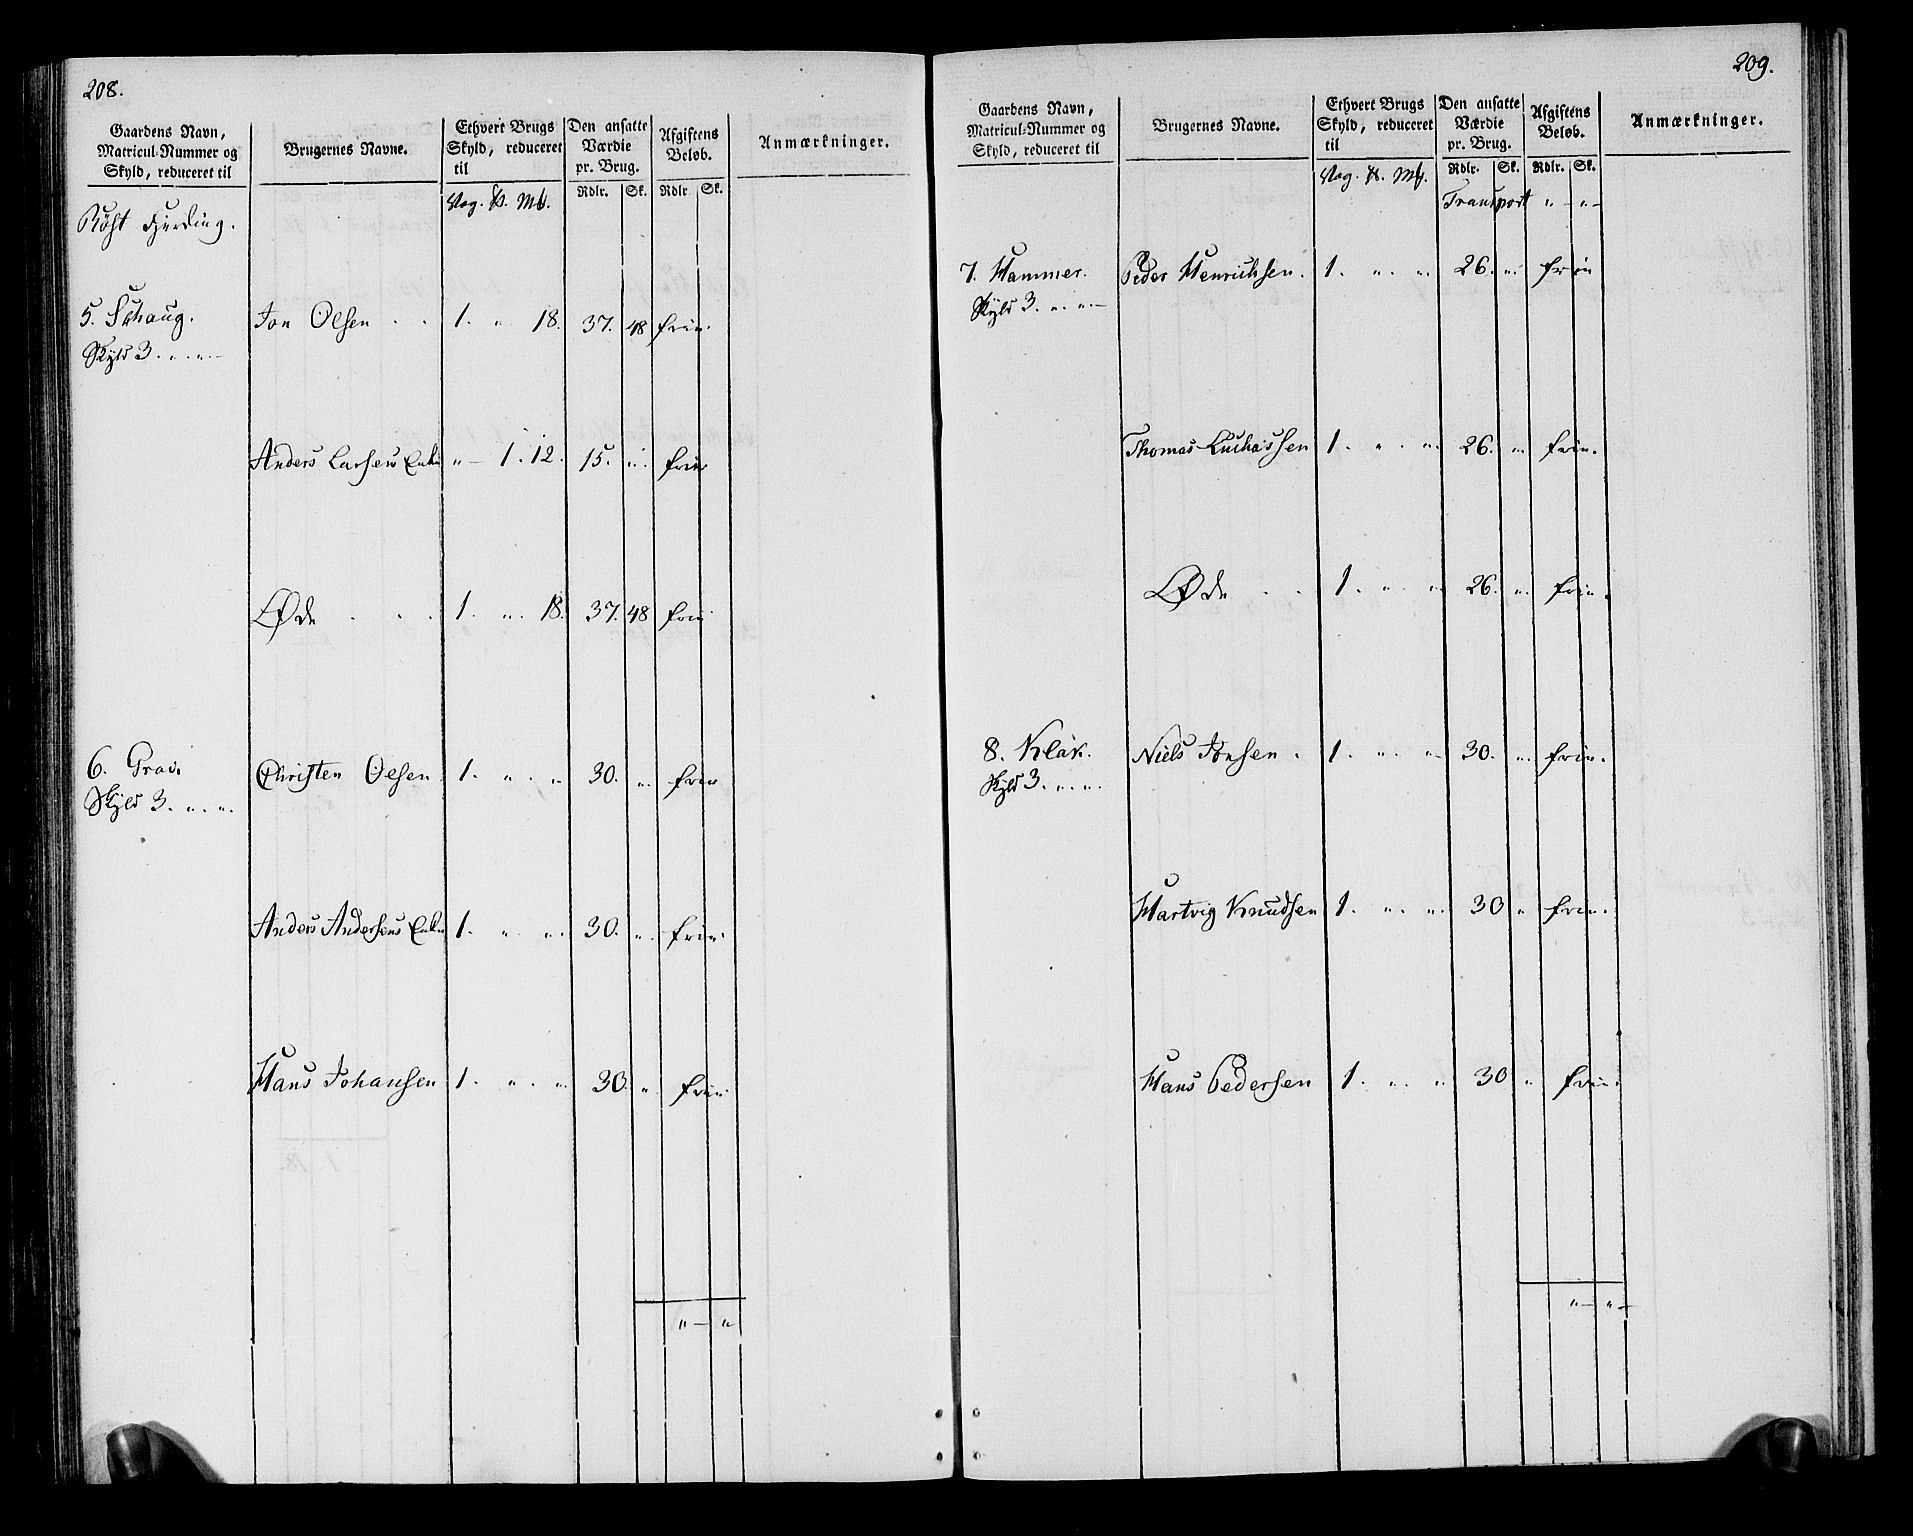 208.
Gaardens Navn, Matricul-Nummer og Skyld, reduceret til
Brugernes Navne.
Ethvert Brugs Skyld, reduceret til
Den ansatte Værdie pr. Brug.
Afgiftens Beløb.
Anmærkninger.
Vog. Mk.
Rdlr. Sk. Rdlr Sk.
Røst Fjerding.
5. Schaug. Jon Olsen . . 1. „ 18. 37. 48 frie.
Skyld 3. „. „. –
Anders Larsens Enke „ – 1. 12. 15. „. frie
Øde . . . 1. „. 18. 37. 48 frie
6. Christen Olsen 1. „. „ 30. „. frie
Skyld 3. „. „.
Anders Andersens Enke 1. „. „. 30. „. frie.
Hans Johansen 1. „. „. 30. „. frie
„ – „
209.
Gaardens Navn, Matricul-Nummer og Skyld, reduceret til
Brugernes Navne.
Ethvert Brugs Skyld, reduceret til
Den ansatte Værdie pr. Brug.
Afgiftens Beløb.
Anmærkninger.
Vog. Mk.
Rdlr. Sk. Rdlr. Sk.
Transport „ – „ –
7. Hammer. Peder Henrichsen. 1. „. „. 26. „. frie
Skyld 3. „. „. –
Thomas Luchassen 1. „. „. 26. „. frie.
Øde . . 1. „. „. 26. „. frie.
8. Klak. Niels Jonsen. 1. „. „. 30. „. frie.
Skyld 3. „. „.
Hartvig Knudsen 1. „. „. 30 „ frie.
Hans Pedersen 1. „. „ 30 „ frie.
„ – „ –